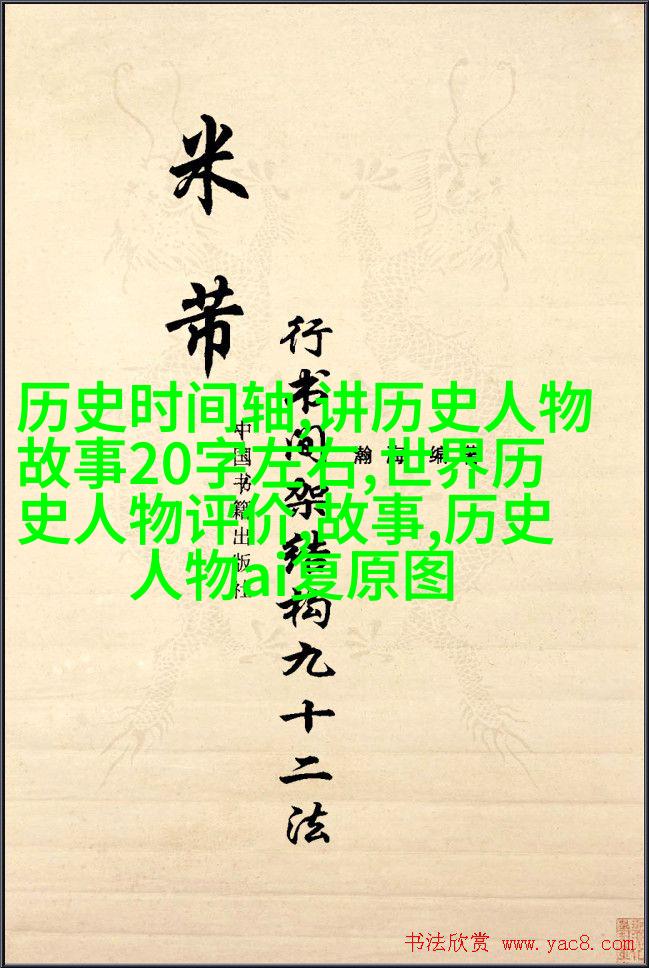 米芾
行书间架结构九十二法
瀚海 编著
中国书籍出版社
历史时间轴,讲历史人物
故事20字左右,世界历
史人物评价,故事,历史
人物ai复原图
书法欣赏 www.yac8.com